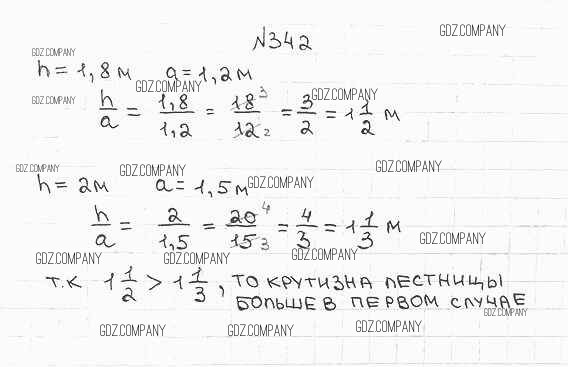 №342
GDZ.COMPANY
GDZ.COMPANY
h = 1,8 м a = 1,2 м
GDZ.COMPANY
GDZ.COMPANY GDZ.COMPANY
h/a = 1,8/1,2 = 18³/12₂ = 3/2 = 1 1/2 м
GDZ.COMPANY GDZ.COMPANY GDZ.COMPANY
h = 2м a = 1,5 м GDZ.COMPANY
h/a = 2/1,5 = 20⁴/15₃ = 4/3 = 1 1/3 м
GDZ.COMPANY
GDZ.COMPANY GDZ.COMPANY GDZ.COMPANY
т.к 1 1/2 > 1 1/3, то крутизна лестницы
больше в первом случае
GDZ.COMPANY
GDZ.COMPANY GDZ.COMPANY GDZ.COMPANY